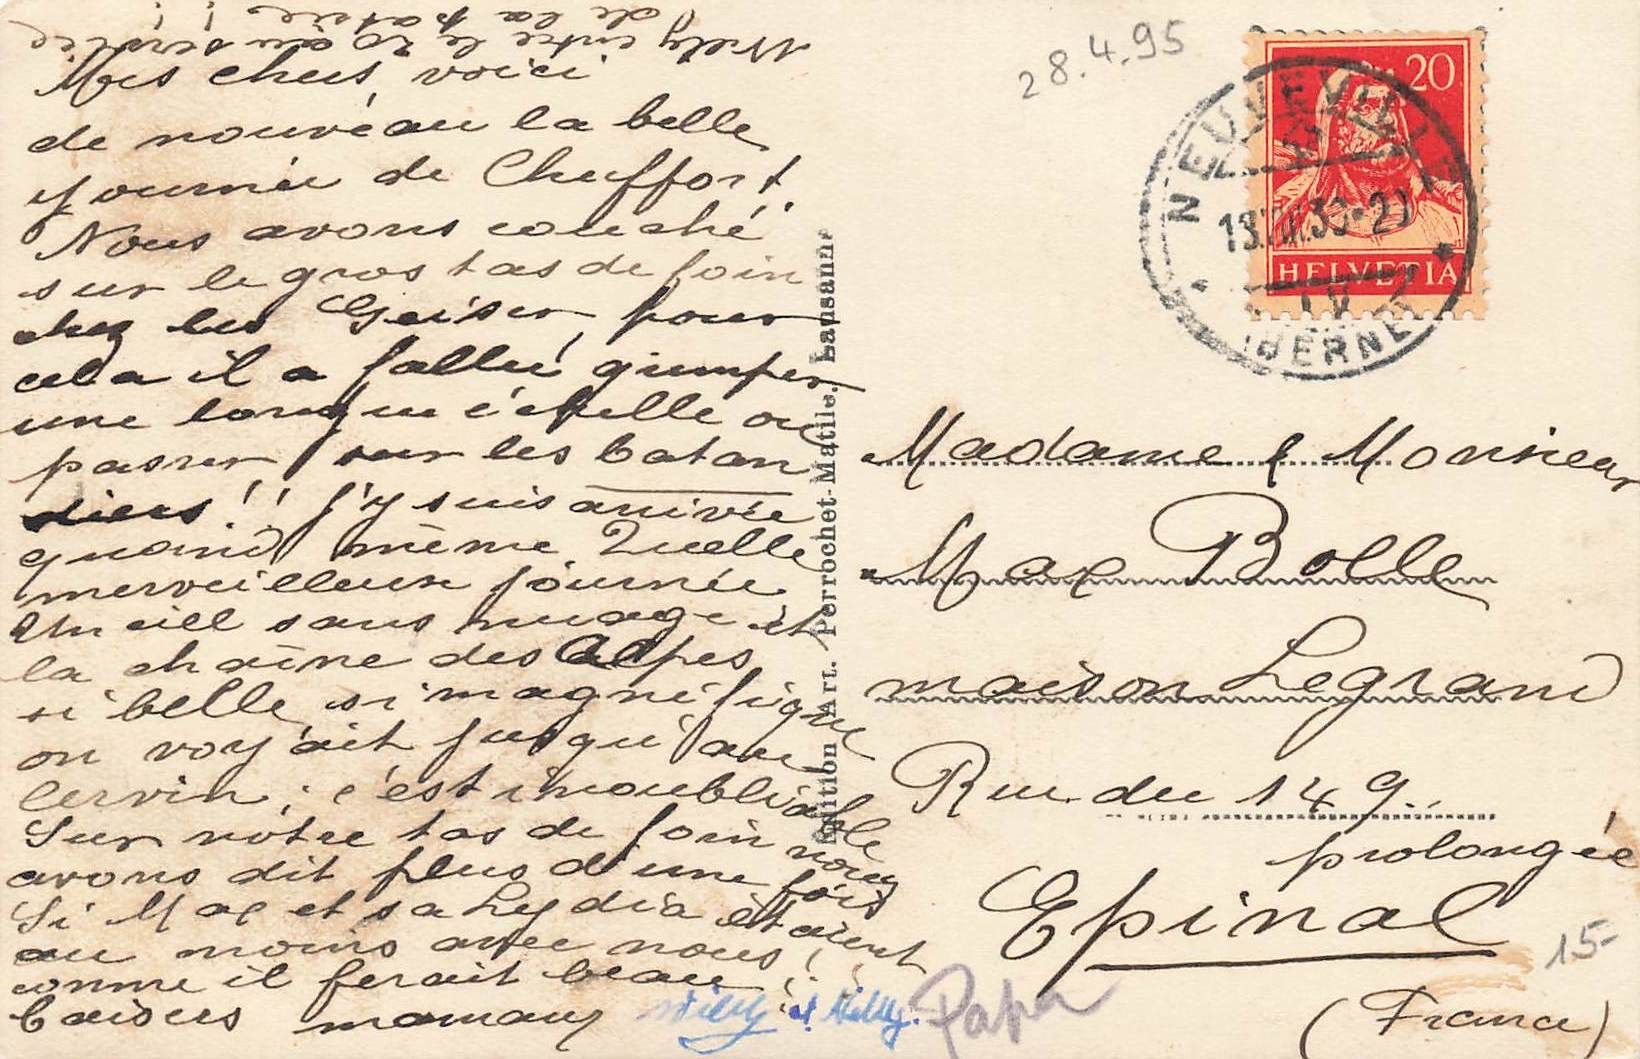 Willy entre le 20 au service
de la patrie !!
Mes chers, voici
de nouveau la belle
journée de Chuffort.
Nous avons couché
sur le gros tas de foin
chez les Geiser, pour
cela il a fallu grimper
une longue échelle ou
passer sur les batan
diers!! J'y suis arrivée
quand même Quelle
merveilleuse journée
Un ciel sans nuage et
la chaîne des Alpes
si belle, si magnifique
on voyait jusqu'au
Cervin; c'est inoubliable
Sur nôtre tas de foin nous
avons dit plus d'une fois
Si Max et sa Lydia étaient
au moins avec nous!
comme il ferait beau!
baisers maman
Willy et Nelly. Papa
Edition Art. Perrochet-Matile, Lausanne
28.4.95
20
HELVETIA
NEUVEVILLE
BERNE
Madame & Monsieur
Max Bolle
maison Legrand
Rue du 149.
prolongée
Epinal
(France)
15-